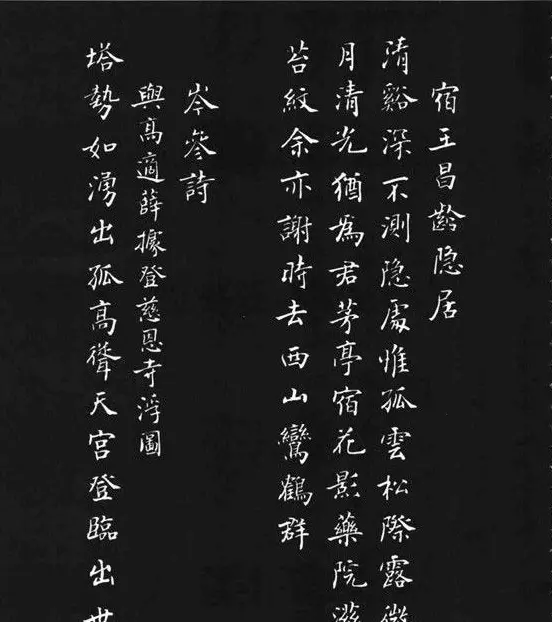 宿王昌齡隐居
清谿深不測隐處惟孤雲松際露微
月清光猶為君茅亭宿花影藥院滋
苔紋余亦謝時去西山鸞鶴群
岑參詩
與高適薛據登慈恩寺浮圖
塔勢如湧出孤高聳天宮登臨出世